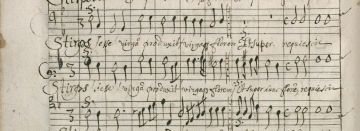 Stirps Iesse virgo produxit virgam florem Et super requiescit
Stirps Iesse virgo produxit virgam florem Et super hunc florē requiescit